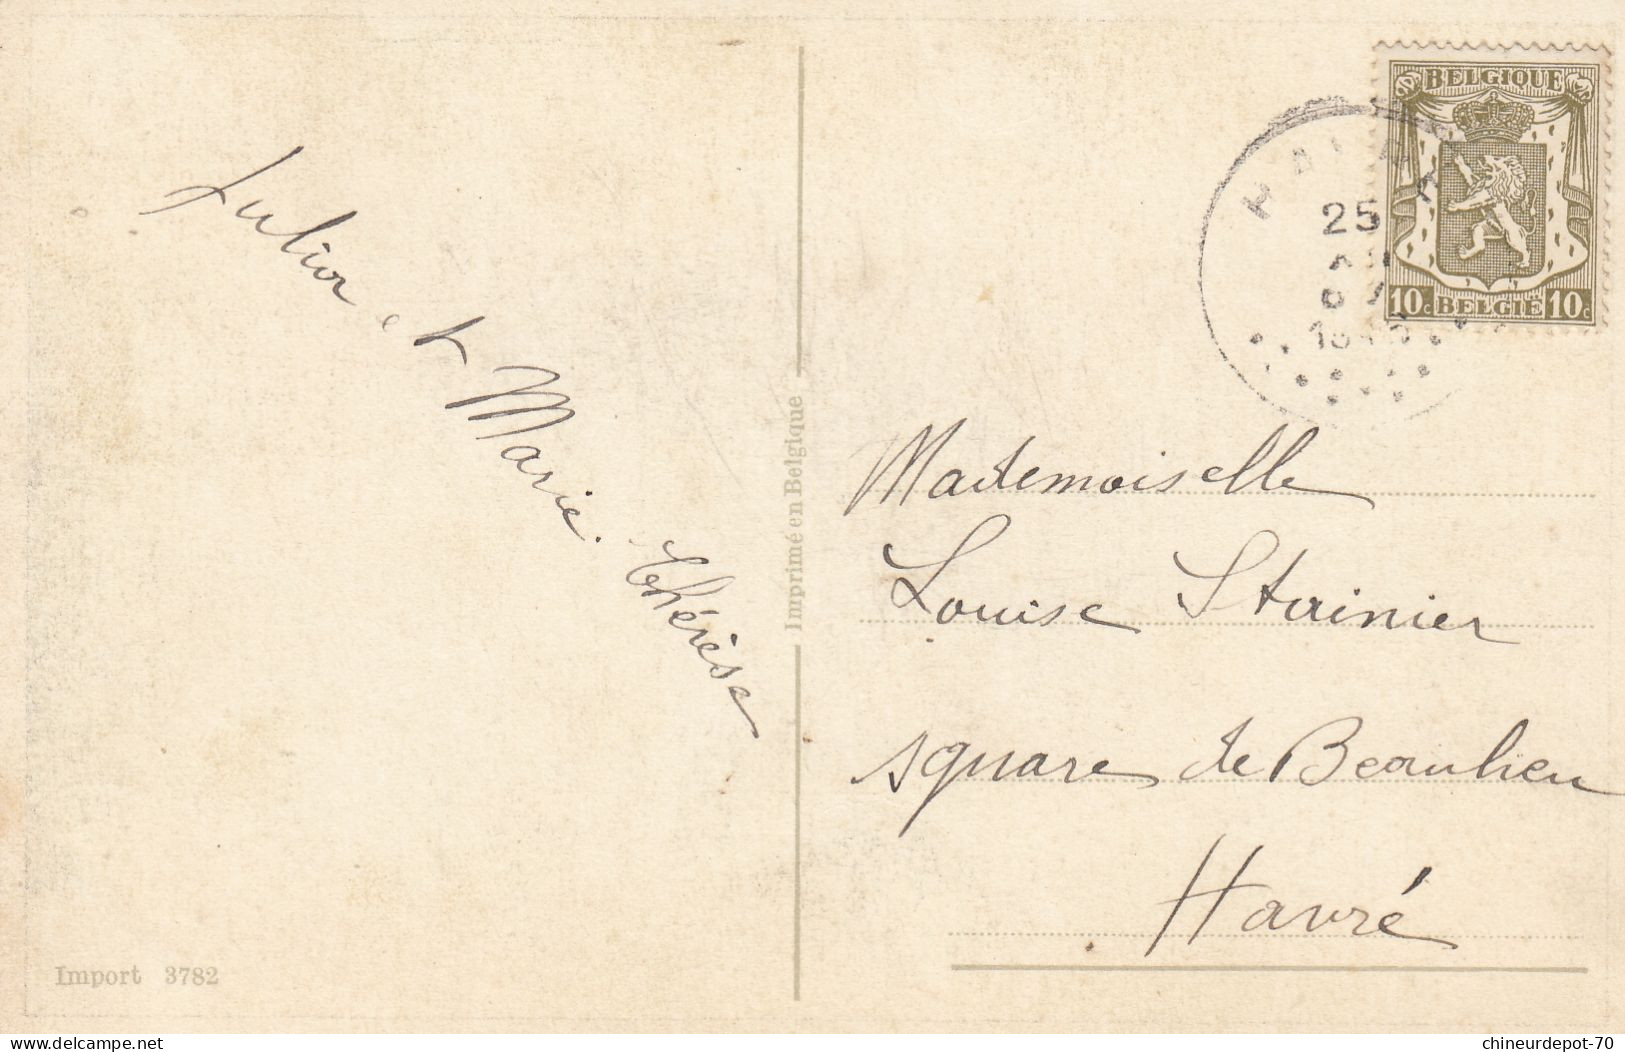 Julia et
Marie-Thérèse
Imprimé en Belgique
Import 3782
BELGIQUE
10c BELGIE 10c
25
Mademoiselle
Louise Stainier
square de Beaulieu
Havré
www.delcampe.net
chineurdepot-70